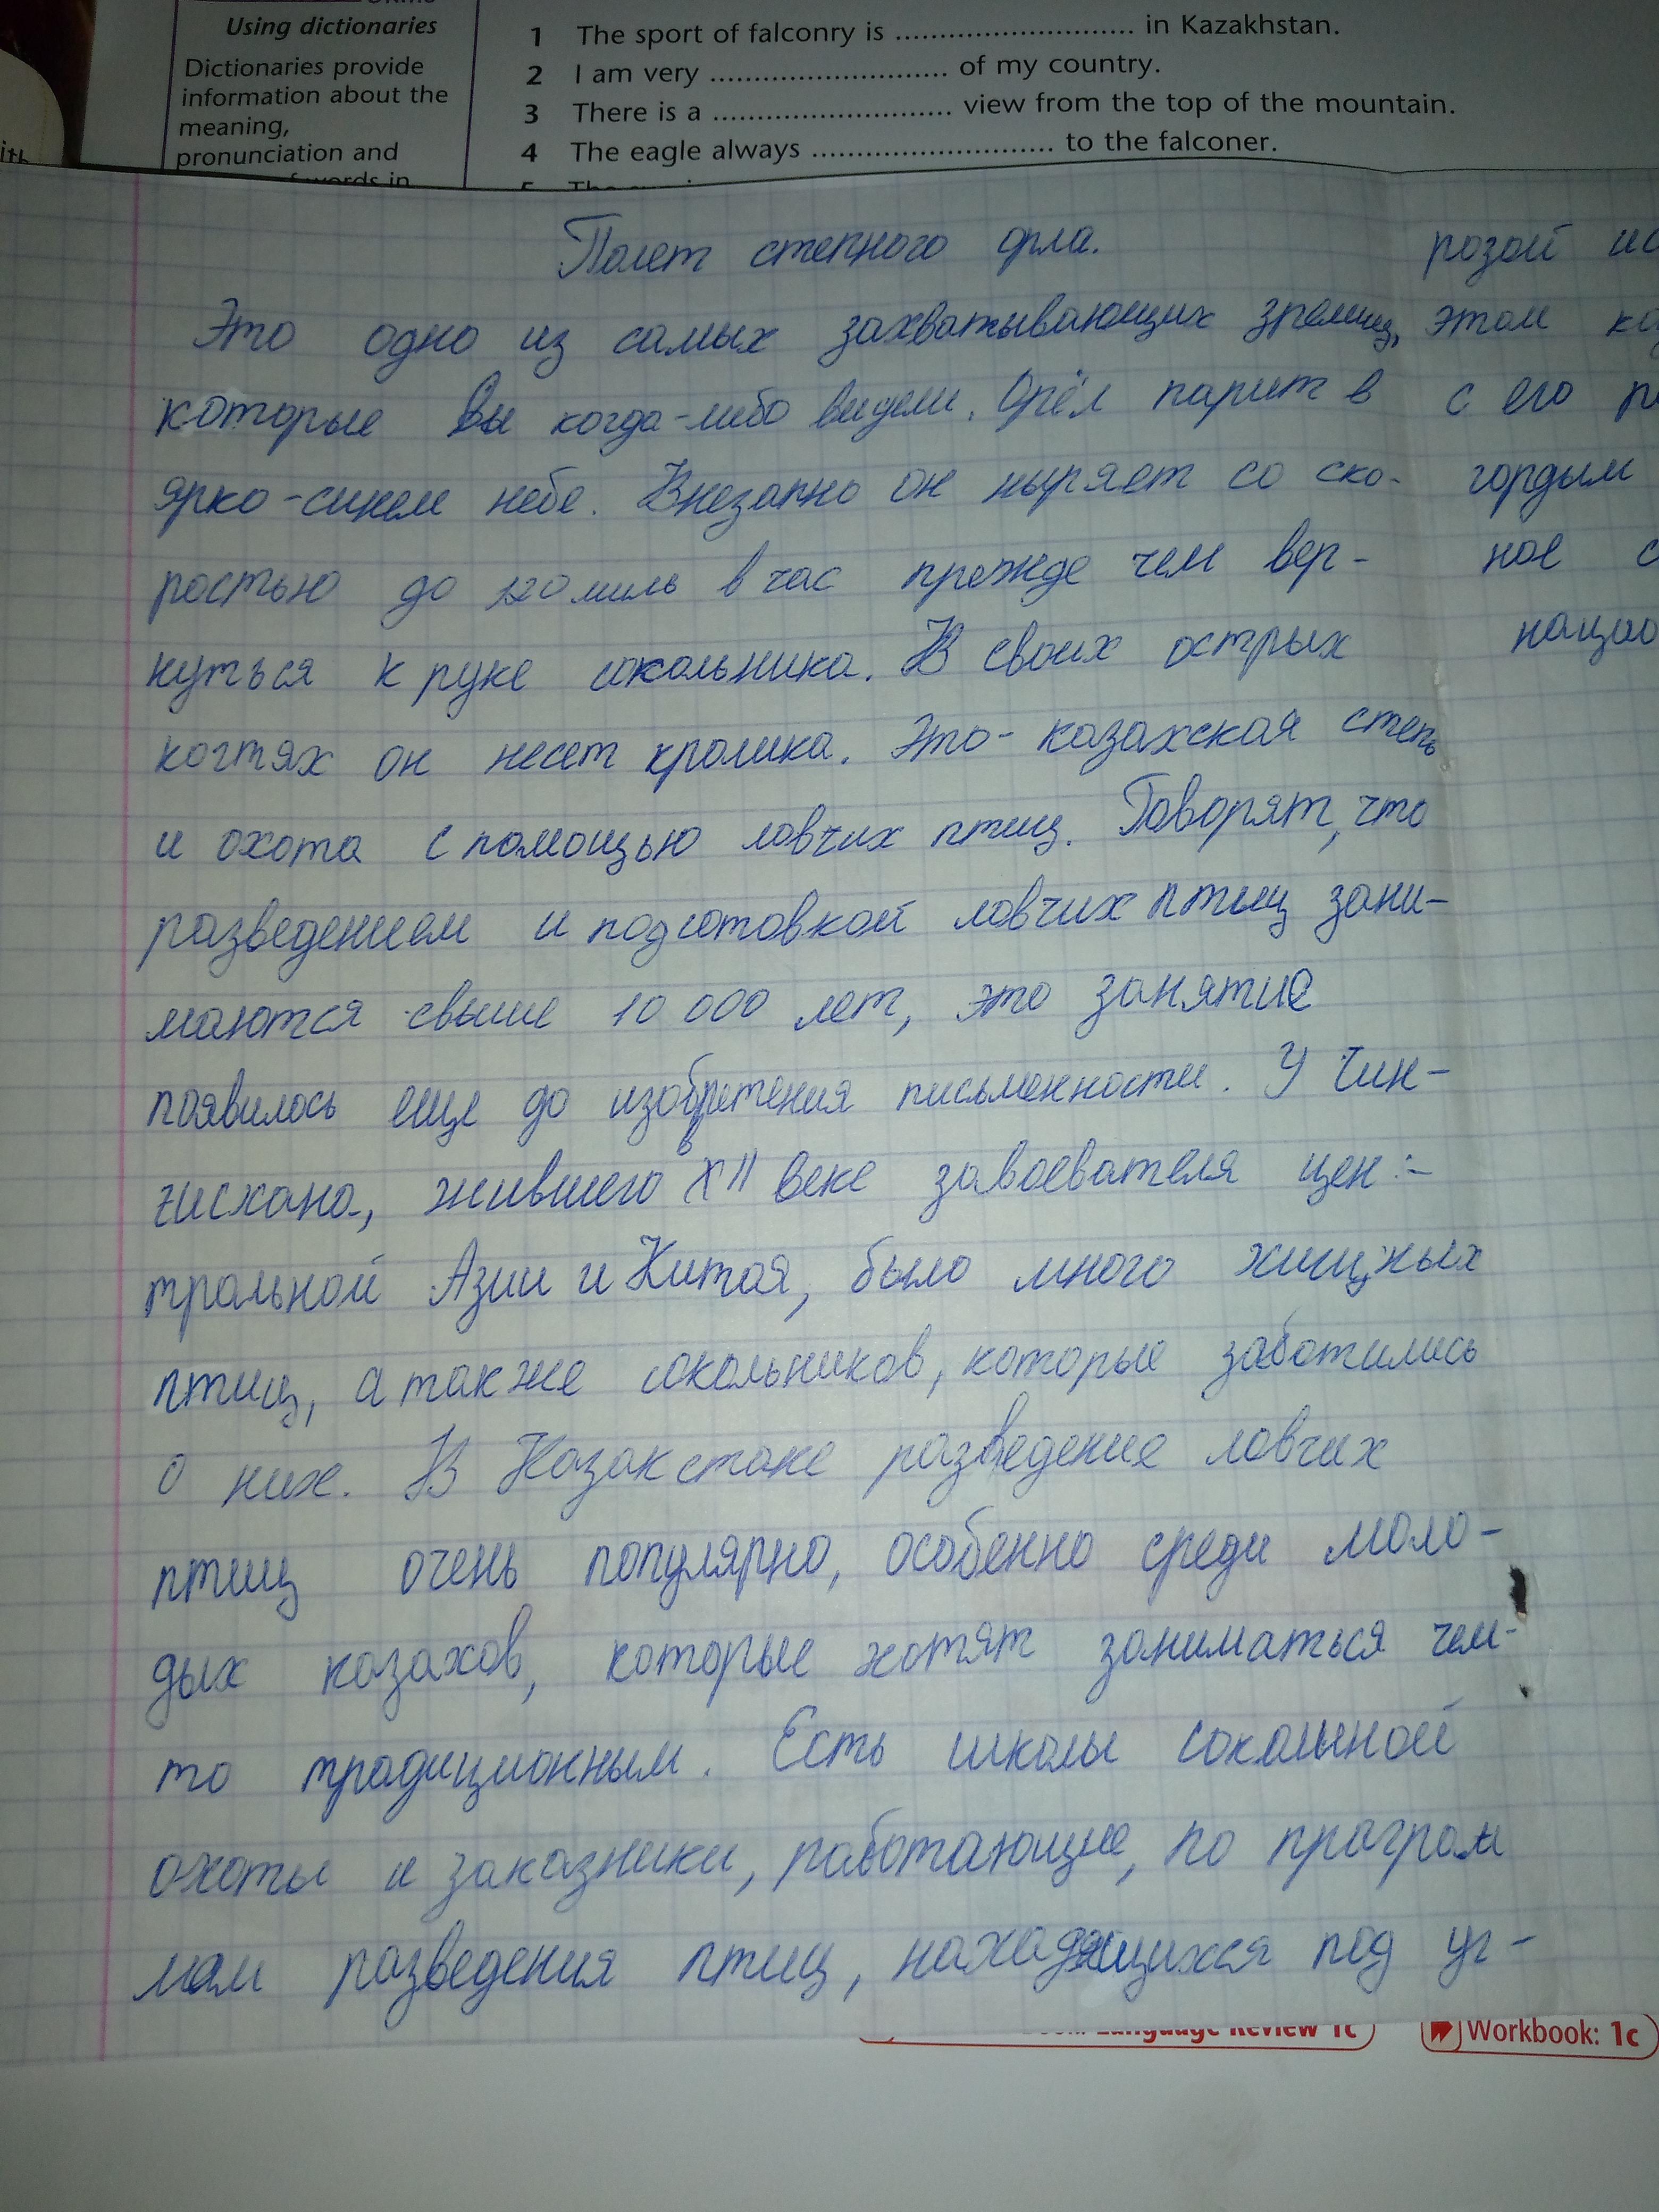 Using dictionaries
Dictionaries provide
information about the
meaning,
pronunciation and
words in
1 The sport of falconry is .......................... in Kazakhstan.
2 I am very .......................... of my country.
3 There is a .......................... view from the top of the mountain.
4 The eagle always .......................... to the falconer.
Полет степного орла.
Это одно из самых захватывающих зрелищ,
которые вы когда-либо видели. Орёл парит в
ярко-синем небе. Внезапно он ныряет со ско-
ростью до 120 миль в час прежде чем вер-
нуться к руке сокольника. В своих острых
когтях он несет кролика. Это- казахская степь
и охота с помощью ловчих птиц. Говорят, что
разведением и подготовкой ловчих птиц зани-
маются свыше 10 000 лет, это занятие
появилось еще до изобретения письменности. У Чин-
гисхана, жившего в XII веке завоевателя цен-
тральной Азии и Китая, было много хищных
птиц, а также сокольников, которые заботились
о них. В Казакстане разведение ловчих
птиц очень популярно, особенно среди моло-
дых казахов, которые хотят заниматься чем-
то традиционным. Есть школы соколиной
охоты и заказники, работающие, по програм
мам разведения птиц, находящихся под уг-
розой ис
этом ка
с его
гордым
ное с
нацио
Language Review 1c
Workbook: 1c